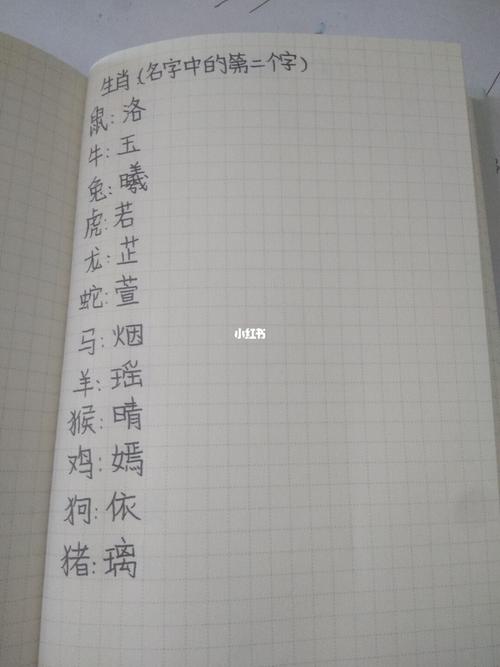 生肖(名字中的第二个字)
鼠:洛
牛:玉
兔:曦
虎:若
龙:芷
蛇:萱
马:烟
小红书
羊:瑶
猴:晴
鸡:嫣
狗:依
猪:璃